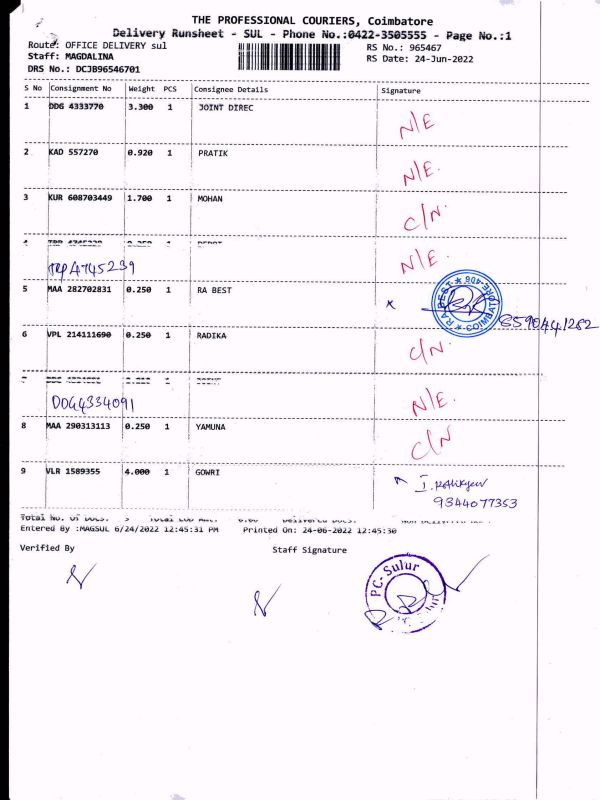 THE PROFESSIONAL COURIERS, Coimbatore
Delivery Runsheet - SUL - Phone No.:0422-3505555 - Page No.:1
Route: OFFICE DELIVERY sul RS No.: 965467
Staff: MAGDALINA RS Date: 24-Jun-2022
DRS No.: DCJB96546701
S No Consignment No Weight PCS Consignee Details Signature
1 DDG 4333770 3.300 1 JOINT DIREC
N/E
2 KAD 557270 0.920 1 PRATIK
N/E.
3 KUR 608703449 1.700 1 MOHAN
C/N.
4 1
TRP4745239 N/E.
5 MAA 282702831 0.250 1 RA BEST
RA BEST * COIMBATORE-406 *
x 6590441282
6 VPL 214111690 0.250 1 RADIKA
C/N.
7 1
DDG4334091 N/E.
8 MAA 290313113 0.250 1 YAMUNA
C/N
9 VLR 1589355 4.000 1 GOWRI
9344077353
Entered By :MAGSUL 6/24/2022 12:45:31 PM Printed On: 24-06-2022 12:45:30
Verified By Staff Signature
PC-Sulur